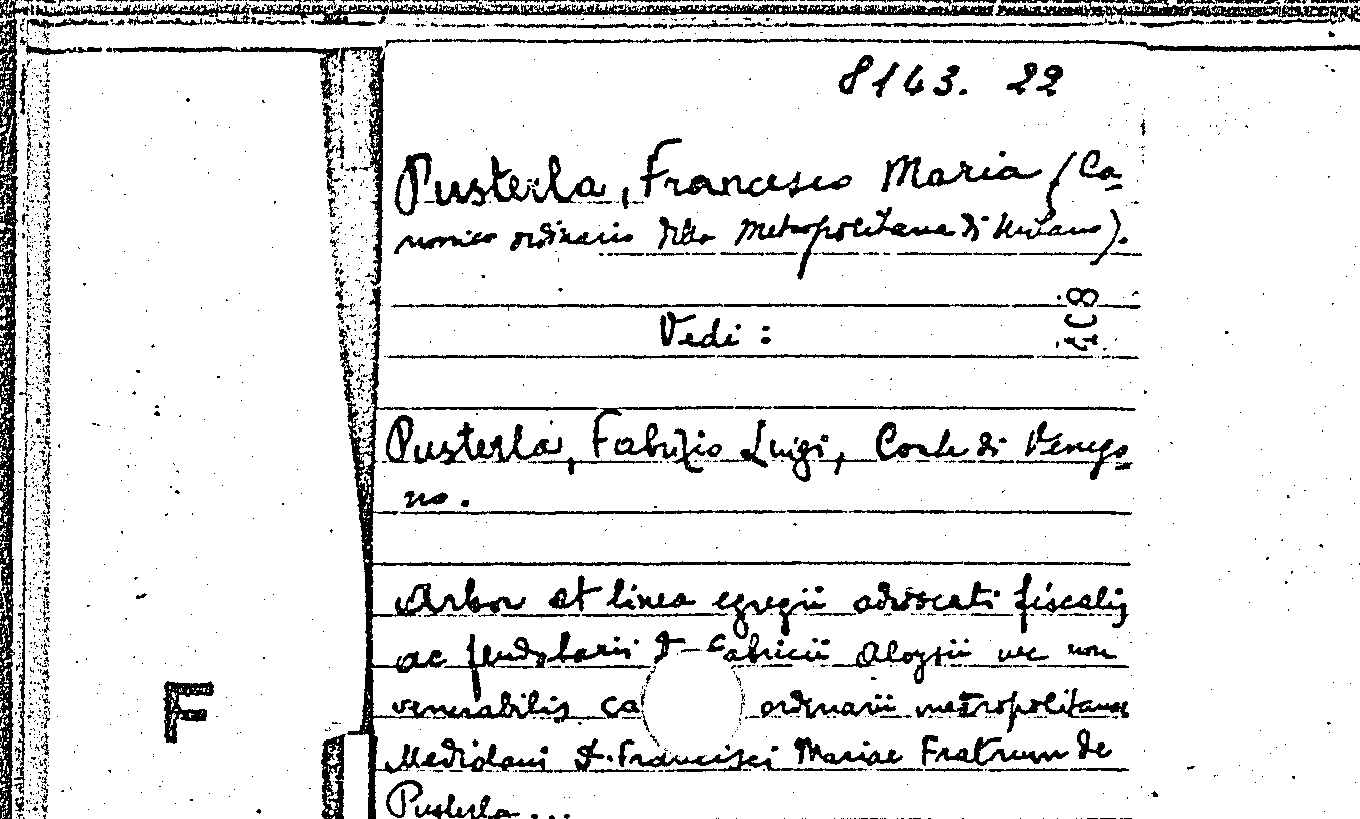 8143. 22
Pusterla, Francesco Maria (Ca-
nonico ordinario della Metropolitana di Milano).
108
Vedi :
Pusterla, Fabrizio Luigi, Conte di Venego-
no.
Arbor et linea egregii advocati fiscalis
ac feudatarii D. Fabricii Aloysii nec non
venerabilis ca ordinarii metropolitanae
Mediolani D. Francisci Mariae Fratrum de
Pusterla...
F